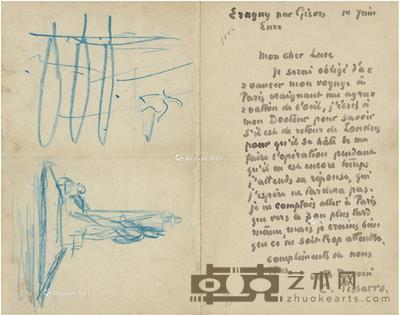 Eragny par Gisors 10 Juin
Eure
Mon cher Luce
Je serai obligé d'a-
vancer mon voyage à
Paris craignant une agra-
vation de l'oeil, j'écris à
mon Docteur pour savoir
s'il est de retour de Londres
pour qu'il se hâte de me
faire l'opération pendant
qu'il en est encore temps
j'attends sa réponse, qui
j'espère ne tardera pas.
je comptais aller à Paris
que vers le plus tard
mais je crains bien
que ce ne soit trop attendre,
compliments de nous
C. Pissarro
Artron.Net
Artron.Net
Artron.Net
Artron.Net
卓克艺术网
zhuokearts.com